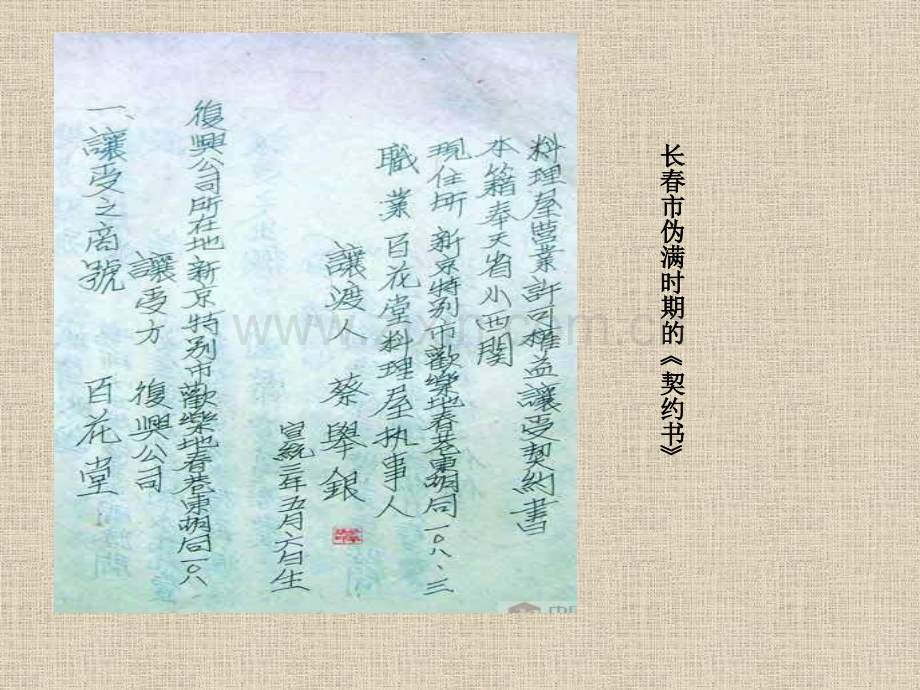 长春市伪满时期的《契约书》
料理屋营業許可權益讓受契約書
本籍奉天省小西関
現住所 新京特别市歡樂地春巷東胡同一〇八、三
職業 百花堂料理屋执事人
讓渡人 蔡舉銀
宣統三年五月六日生
復興公司所在地新京特别市歡樂地春巷東胡同一〇八
讓受方 復興公司
一、讓受之商號 百花堂